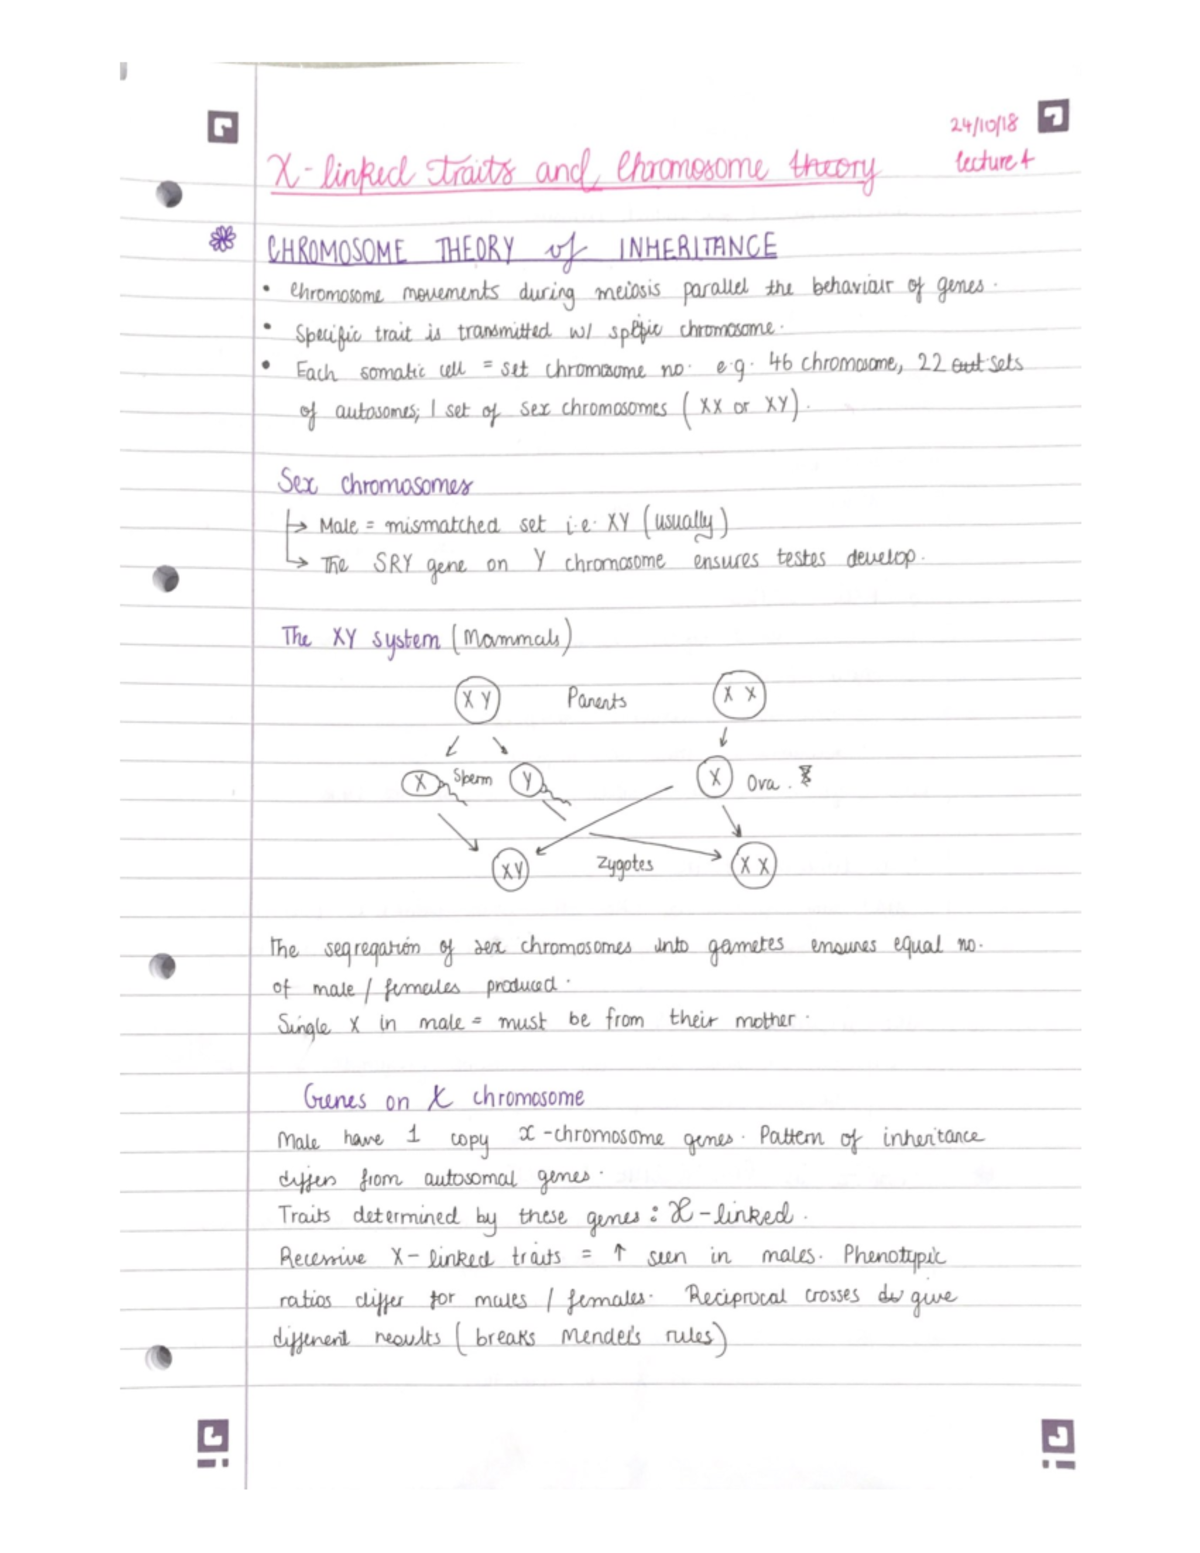 24/10/18
lecture 4
X-linked traits and Chromosome theory
CHROMOSOME THEORY of INHERITANCE
• Chromosome movements during meiosis parallel the behaviour of genes.
• Specific trait is transmitted w/ spefic chromosome.
• Each somatic cell = set chromosome no. e.g. 46 chromosome, 22 aut sets
of autosomes; 1 set of sex chromosomes (XX or XY).
Sex chromosomes
↳ Male = mismatched set i.e. XY (usually)
↳ The SRY gene on Y chromosome ensures testes develop.
The XY system (Mammals)
X Y Parents X X
X Sperm Y X Ova.
XY Zygotes X X
The segregation of sex chromosomes into gametes ensures equal no.
of male / females produced.
Single X in male = must be from their mother.
Genes on X chromosome
Male have 1 copy x-chromosome genes. Pattern of inheritance
differs from autosomal genes.
Traits determined by these genes: X-linked.
Recessive X-linked traits = ↑ seen in males. Phenotypic
ratios differ for males / females. Reciprocal crosses do give
different results (breaks Mendel's rules)